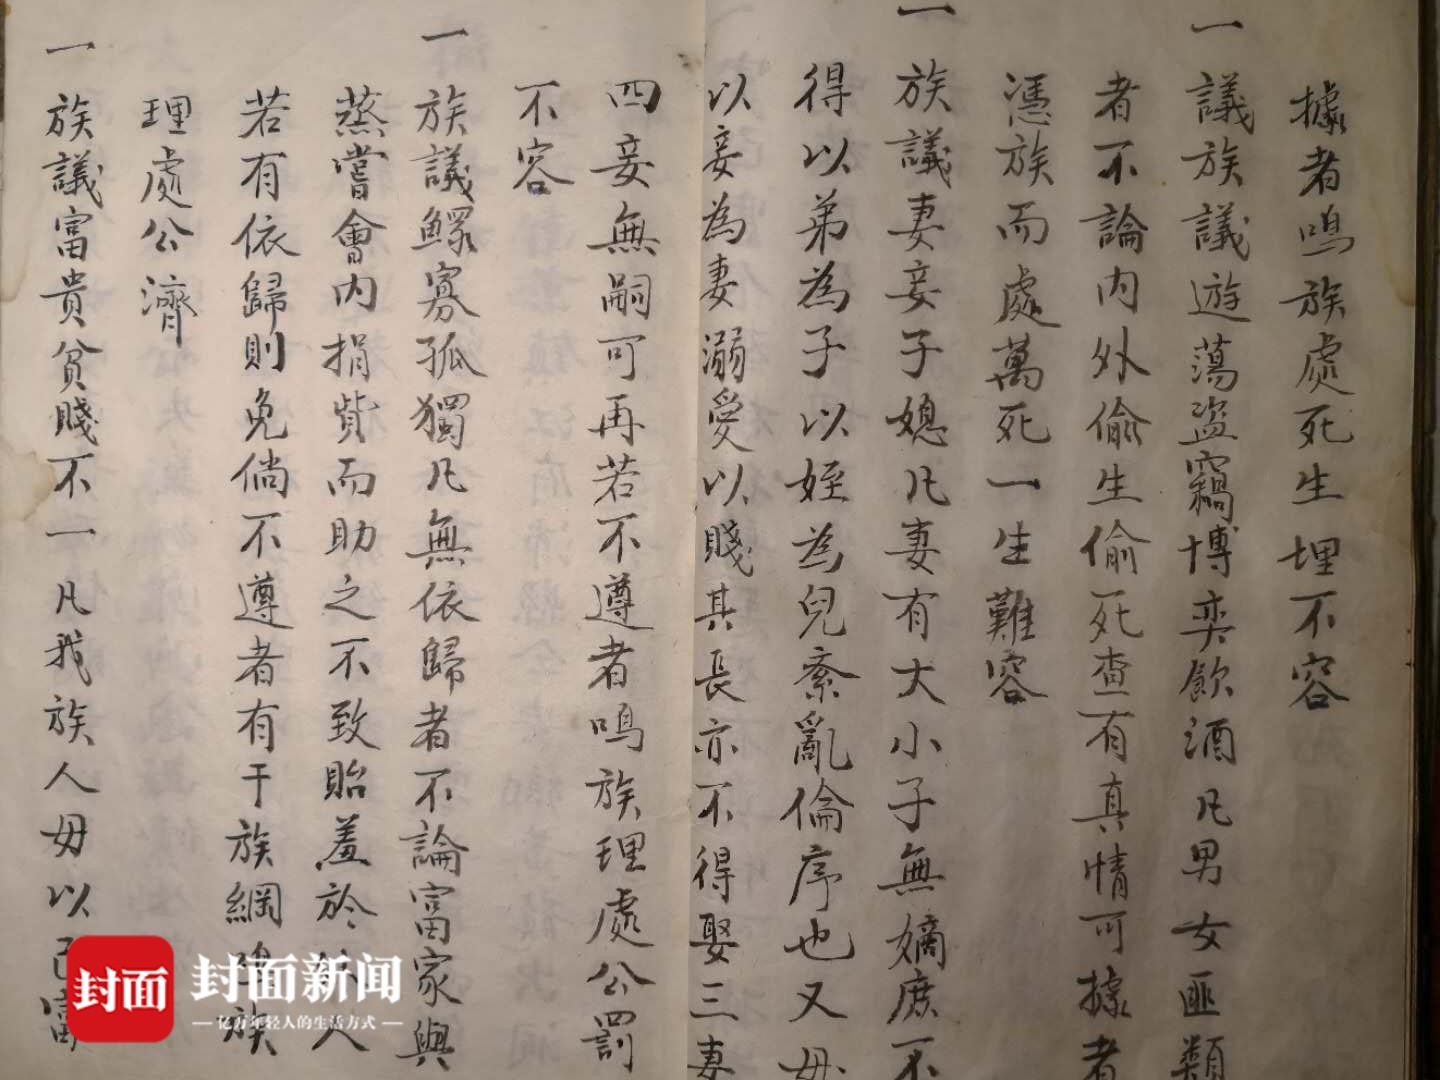 據者鳴族處死生埋不容
一議族議遊蕩盜竊博奕飲酒凡男女匪類
者不論內外偷生偷死查有真情可據者
憑族而處萬死一生難容
一族議妻妾子媳凡妻有大小子無嫡庶不
得以弟為子以姪為兒紊亂倫序也又毋
以妾為妻溺愛以賤其長亦不得娶三妻
四妾無嗣可再若不遵者鳴族理處公罰
不容
一族議鰥寡孤獨凡無依歸者不論富家與
蒸嘗會內捐貲而助之不致貽羞於 人
若有依歸則免倘不遵者有干族綱鳴族
理處公濟
一族議富貴貧賤不一凡我族人毋以己富
封面
封面新闻
亿万年轻人的生活方式